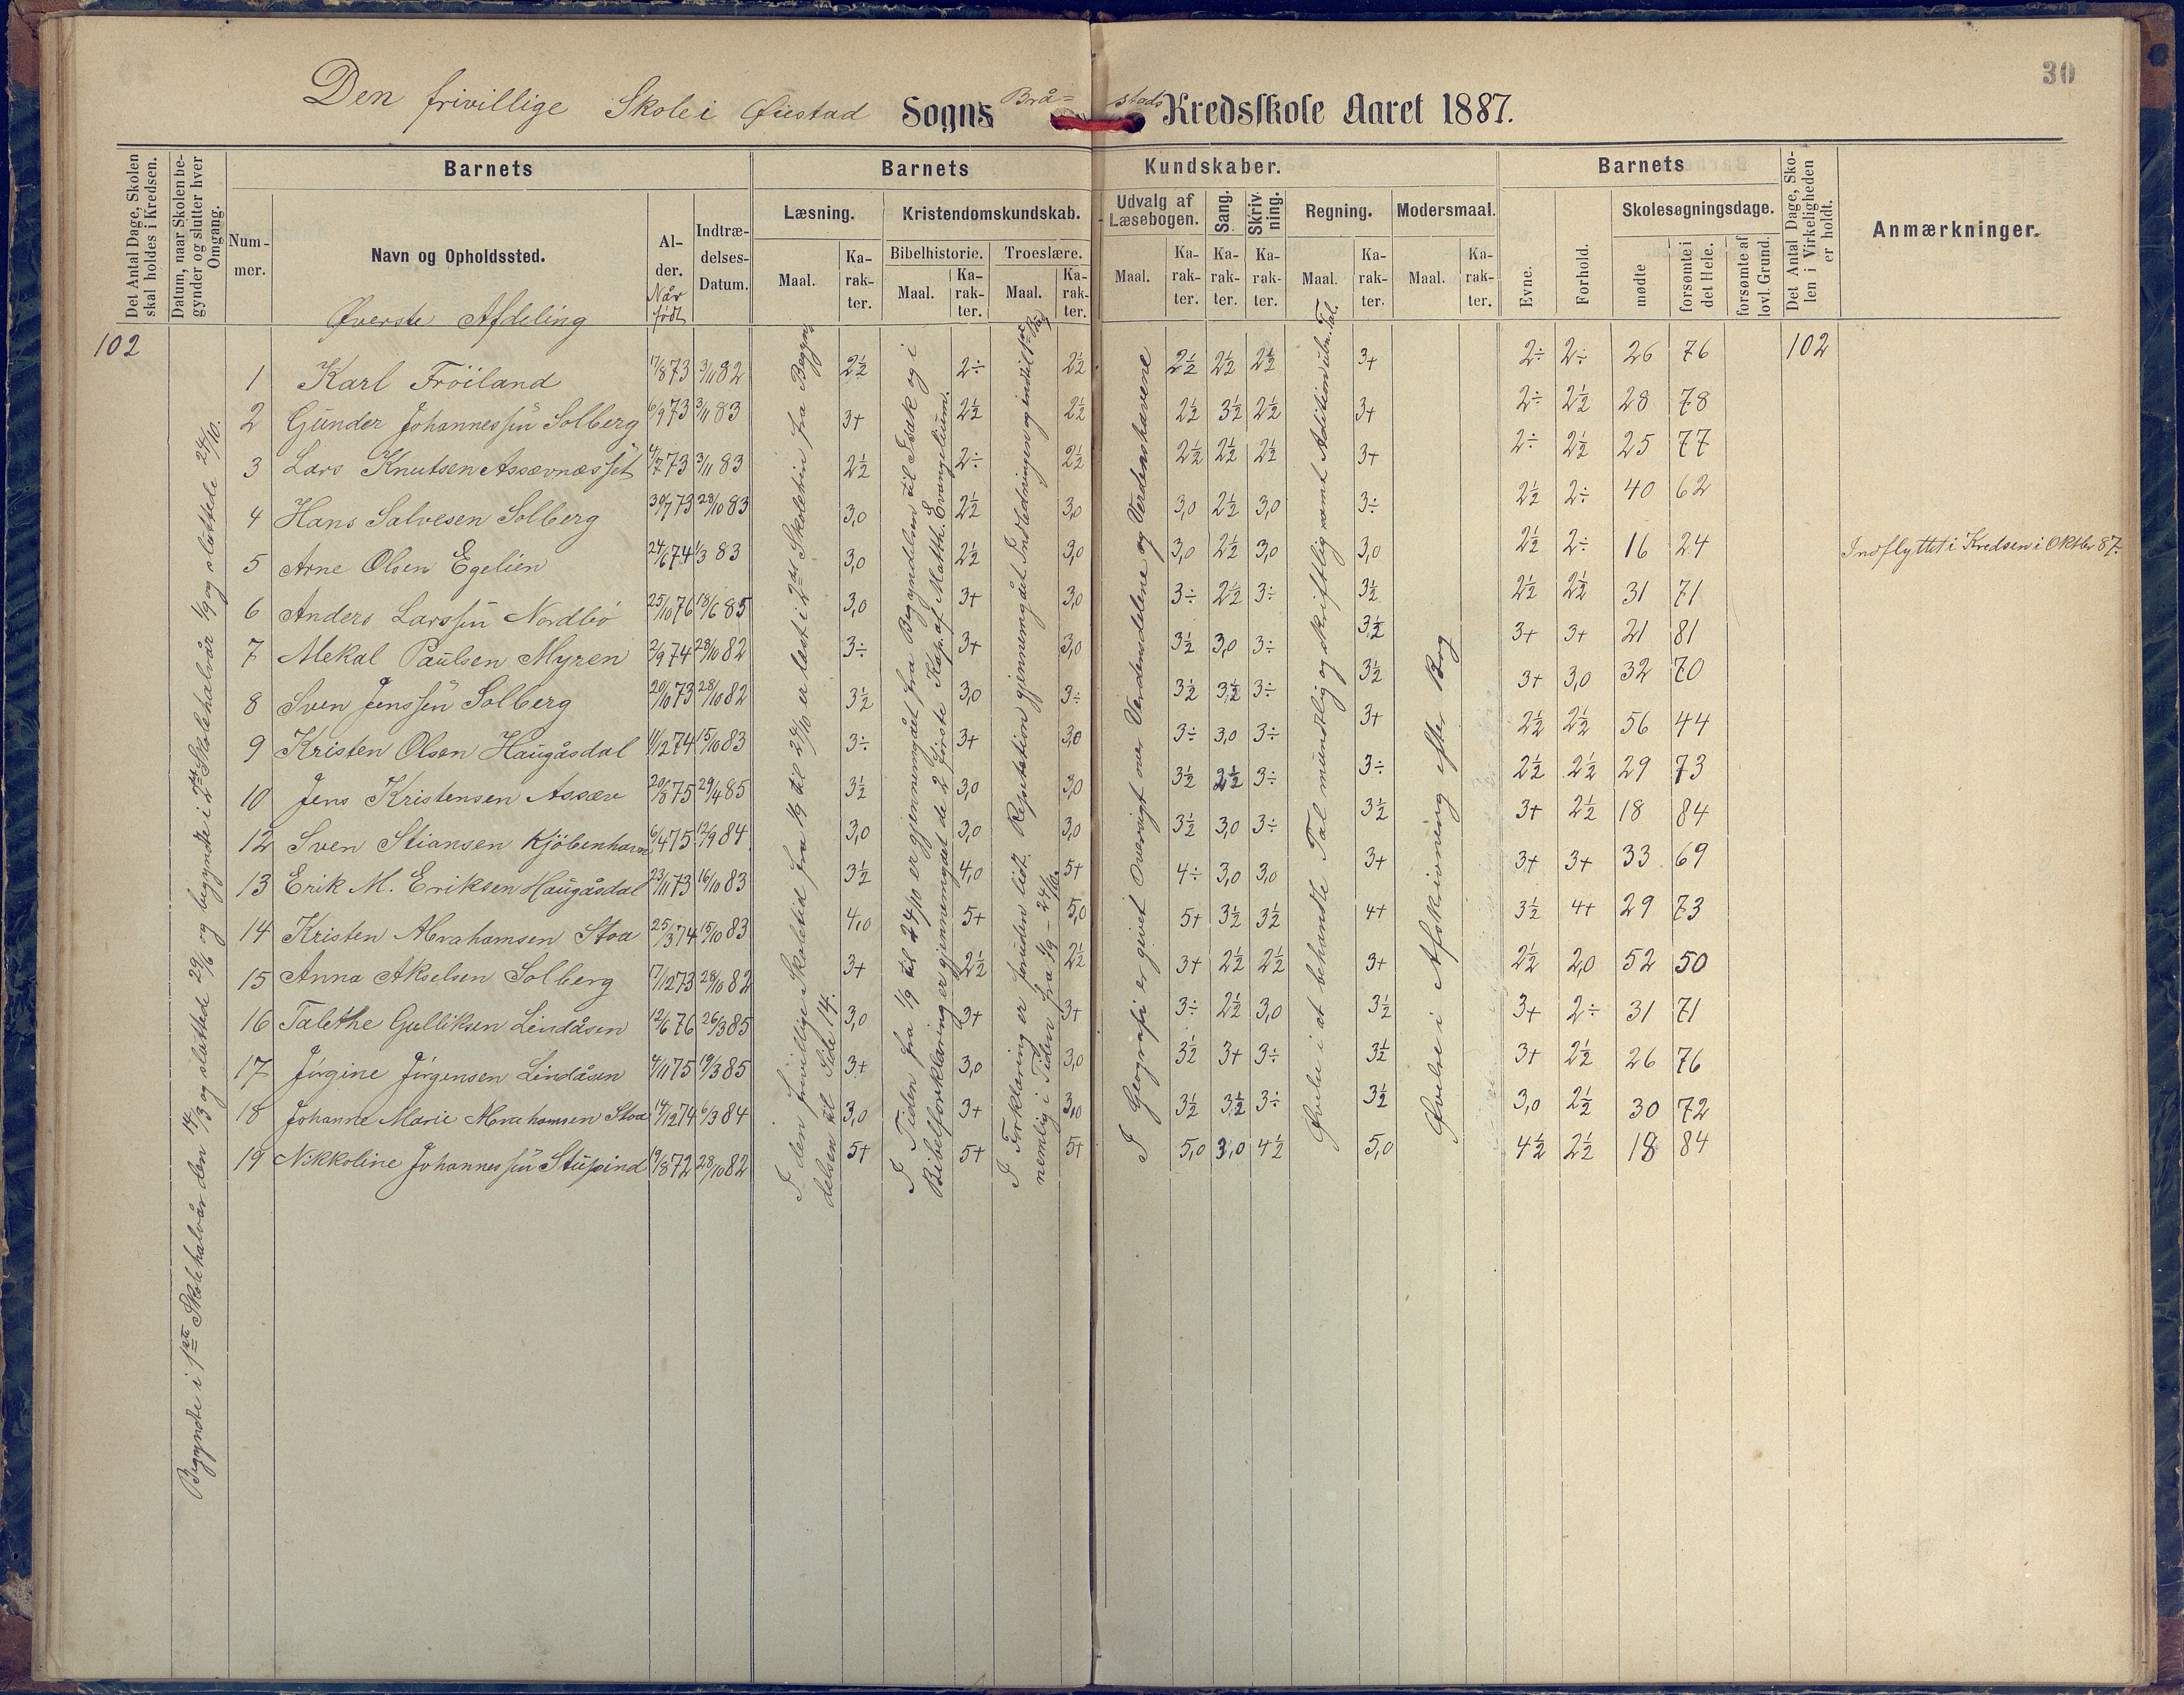 30
Den frivillige Skole i Øiestad Sogns Brå= stads Kredsskole Aaret 1887.
Det Antal Dage, Skolen skal holdes i Kredsen.
Datum, naar Skolen begynder og slutter hver Omgang.
Barnets
Nummer.
Navn og Opholdssted.
Alder. Når født
Indtrædelses-Datum.
Barnets Kundskaber.
Læsning.
Maal. Karakter.
Kristendomskundskab.
Bibelhistorie. Troeslære.
Maal. Karakter. Maal. Karakter.
Udvalg af Læsebogen.
Maal. Karakter.
Sang. Karakter.
Skrivning. Karakter.
Regning.
Maal. Karakter.
Modersmaal.
Maal. Karakter.
Barnets
Evne. Forhold.
Skolesøgningsdage.
mødte forsømte i det Hele. forsømte af lovl. Grund.
Det Antal Dage, Skolen i Virkeligheden er holdt.
Anmærkninger.
Øverste Afdeling
102
102
Begyndte i 1ste Skolehalvår den 14/3 og sluttede 29/6 og begyndte i 2det Skolehalvår 1/9 og sluttede 24/10.
1 Karl Fröiland 17/8 73 3/11 82 2½ 2÷ 2½ 2½ 2½ 2½ 3+ 2÷ 2÷ 26 76
2 Gunder Johannessen Solberg 6/9 73 3/11 83 3+ 2½ 2½ 2½ 3½ 2½ 3+ 2÷ 2½ 28 78
3 Lars Knutsen Assævnæsset 4/7 73 3/11 83 2½ 2÷ 2½ 2½ 2½ 2½ 3+ 2÷ 2½ 25 77
4 Hans Salvesen Solberg 30/7 73 28/10 83 3,0 2½ 3,0 3,0 2½ 3,0 3÷ 2½ 2÷ 40 62
5 Arne Olsen Egelien 24/6 74 1/3 83 3,0 2½ 3,0 3,0 2½ 3,0 3,0 2½ 2÷ 16 24 Indflyttet i Kredsen i Oktbr 87.
6 Anders Larssen Nordbö 25/10 76 18/6 85 3,0 3+ 3,0 3÷ 2½ 3÷ 3½ 2½ 2½ 31 71
7 Mekal Paulsen Myren 2/9 74 28/10 82 3÷ 3+ 3,0 3½ 3,0 3÷ 3½ 3+ 3+ 21 81
8 Sven Jenssen Solberg 20/10 73 28/10 82 3½ 3,0 3÷ 3½ 3½ 3÷ 3½ 3+ 3,0 32 70
9 Kristen Olsen Haugåsdal 11/2 74 15/10 83 3÷ 3+ 3,0 3÷ 3,0 3÷ 3+ 2½ 2½ 56 44
10 Jens Kristensen Assæv 20/8 75 29/4 85 3½ 3,0 3,0 3½ 2½ 3÷ 3÷ 2½ 2½ 29 73
12 Sven Stiansen Kjöbenhavn 6/4 75 12/9 84 3,0 3,0 3,0 3½ 3,0 3÷ 3½ 3+ 2½ 18 84
13 Erik M. Eriksen Haugåsdal 23/11 73 16/10 83 3½ 4,0 5+ 4÷ 3,0 3,0 3+ 3+ 3+ 33 69
14 Kristen Abrahamsen Stoa 25/3 74 15/10 83 4,0 5+ 5,0 5+ 3½ 3½ 4+ 3½ 4+ 29 73
15 Anna Akselsen Solberg 17/12 73 28/10 82 3+ 2½ 2½ 3+ 2½ 2½ 3+ 2½ 2,0 52 50
16 Talethe Gulliksen Lindåsen 12/6 76 26/3 85 3,0 3+ 3+ 3÷ 2½ 3,0 3½ 3+ 2÷ 31 71
17 Jörgine Jörgensen Lindåsen 4/11 75 19/3 85 3+ 3,0 3,0 3½ 3+ 3÷ 3½ 3+ 2½ 26 76
18 Johanne Marie Abrahamsen Stoa 14/12 74 6/3 84 3,0 3+ 3,0 3½ 3½ 3÷ 3½ 3,0 2½ 30 72
19 Nikkoline Johannessen 19/8 72 28/10 82 5+ 5+ 5+ 5,0 3,0 4½ 5,0 4½ 2½ 18 84
I den frivillige Skoletid fra 1/9 til 24/10 er læst i 2det Skoletrin fra Begyn-
delsen til Side 14.
I Tiden fra 1/9 til 24/10 er gjennemgået fra Begyndelsen til Esak og i
Bibelforklaring er gjennemgået de 2 første Kap. af Matth. Evangelium.
I Forklaring er foruden lidt Repetation gjennemgået Indledningen og indtil 1ste Bud
nemlig i Tiden fra 1/9 - 24/10.
I Geografi er givet Oversigt over Verdensdelene og Verdenshavene
Øvelse i at behandle Tal mundtlig og skriftlig samt Adition ubn. Tal.
Øvelse i Afskrivning efter Bog